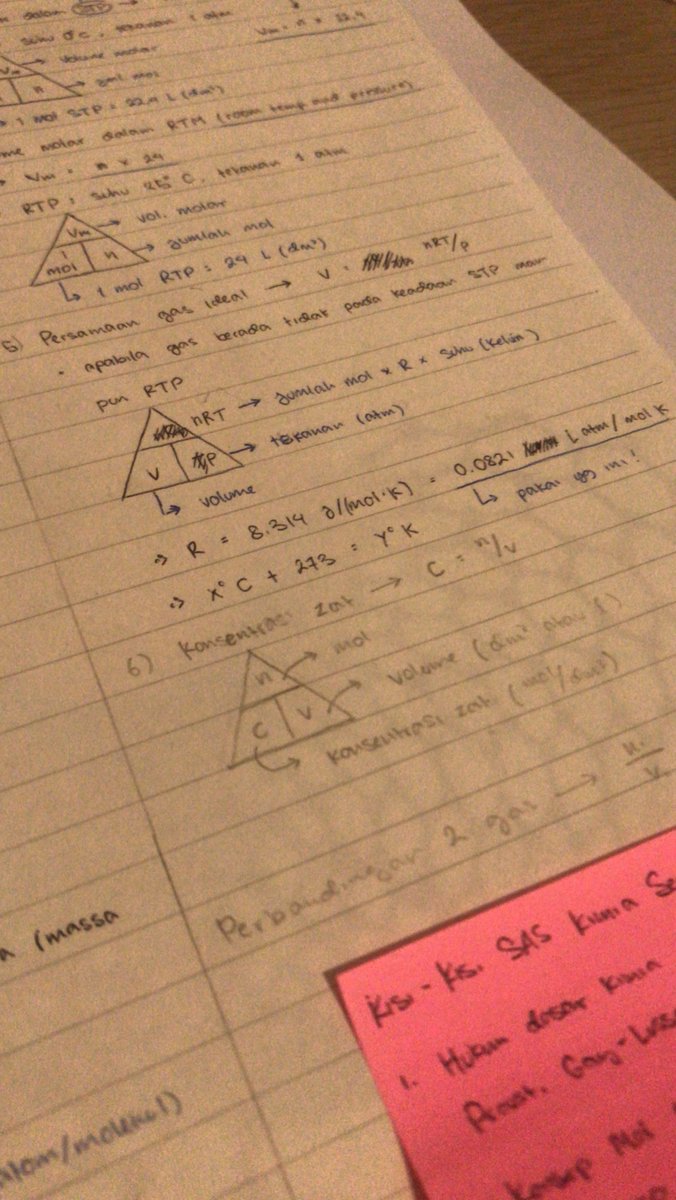 dalam STP
suhu 0°C, tekanan 1 atm
Vm = n x 22,4
Vm → volume molar
n → jml mol
→ 1 mol STP = 22,4 L (dm³)
me molar dalam RTM (room temp and pressure)
Vm = n x 24
RTP : suhu 25° C, tekanan 1 atm
Vm → vol. molar
1 mol n → jumlah mol
↳ 1 mol RTP = 24 L (dm³)
5) Persamaan gas ideal → V = nRT/P
• apabila gas berada tidak pada keadaan STP mau
pun RTP
nRT → jumlah mol x R x suhu (kelvin)
V P → tekanan (atm)
↳ volume
⇒ R = 8.314 J/(mol·K) = 0.0821 L atm/mol K
↳ pakai yg ini!
⇒ X° C + 273 = Y° K
6) Konsentrasi zat → C = n/v
n → mol
C V → volume (dm³ atau l)
→ konsentrasi zat (mol/dm³)
Perbandingan 2 gas → n₁/V
a (massa
atom/molekul)
Kisi-Kisi SAS Kimia Se
1. Hukum dasar kimia
Proust, Gay-Luss
Konsep Mol